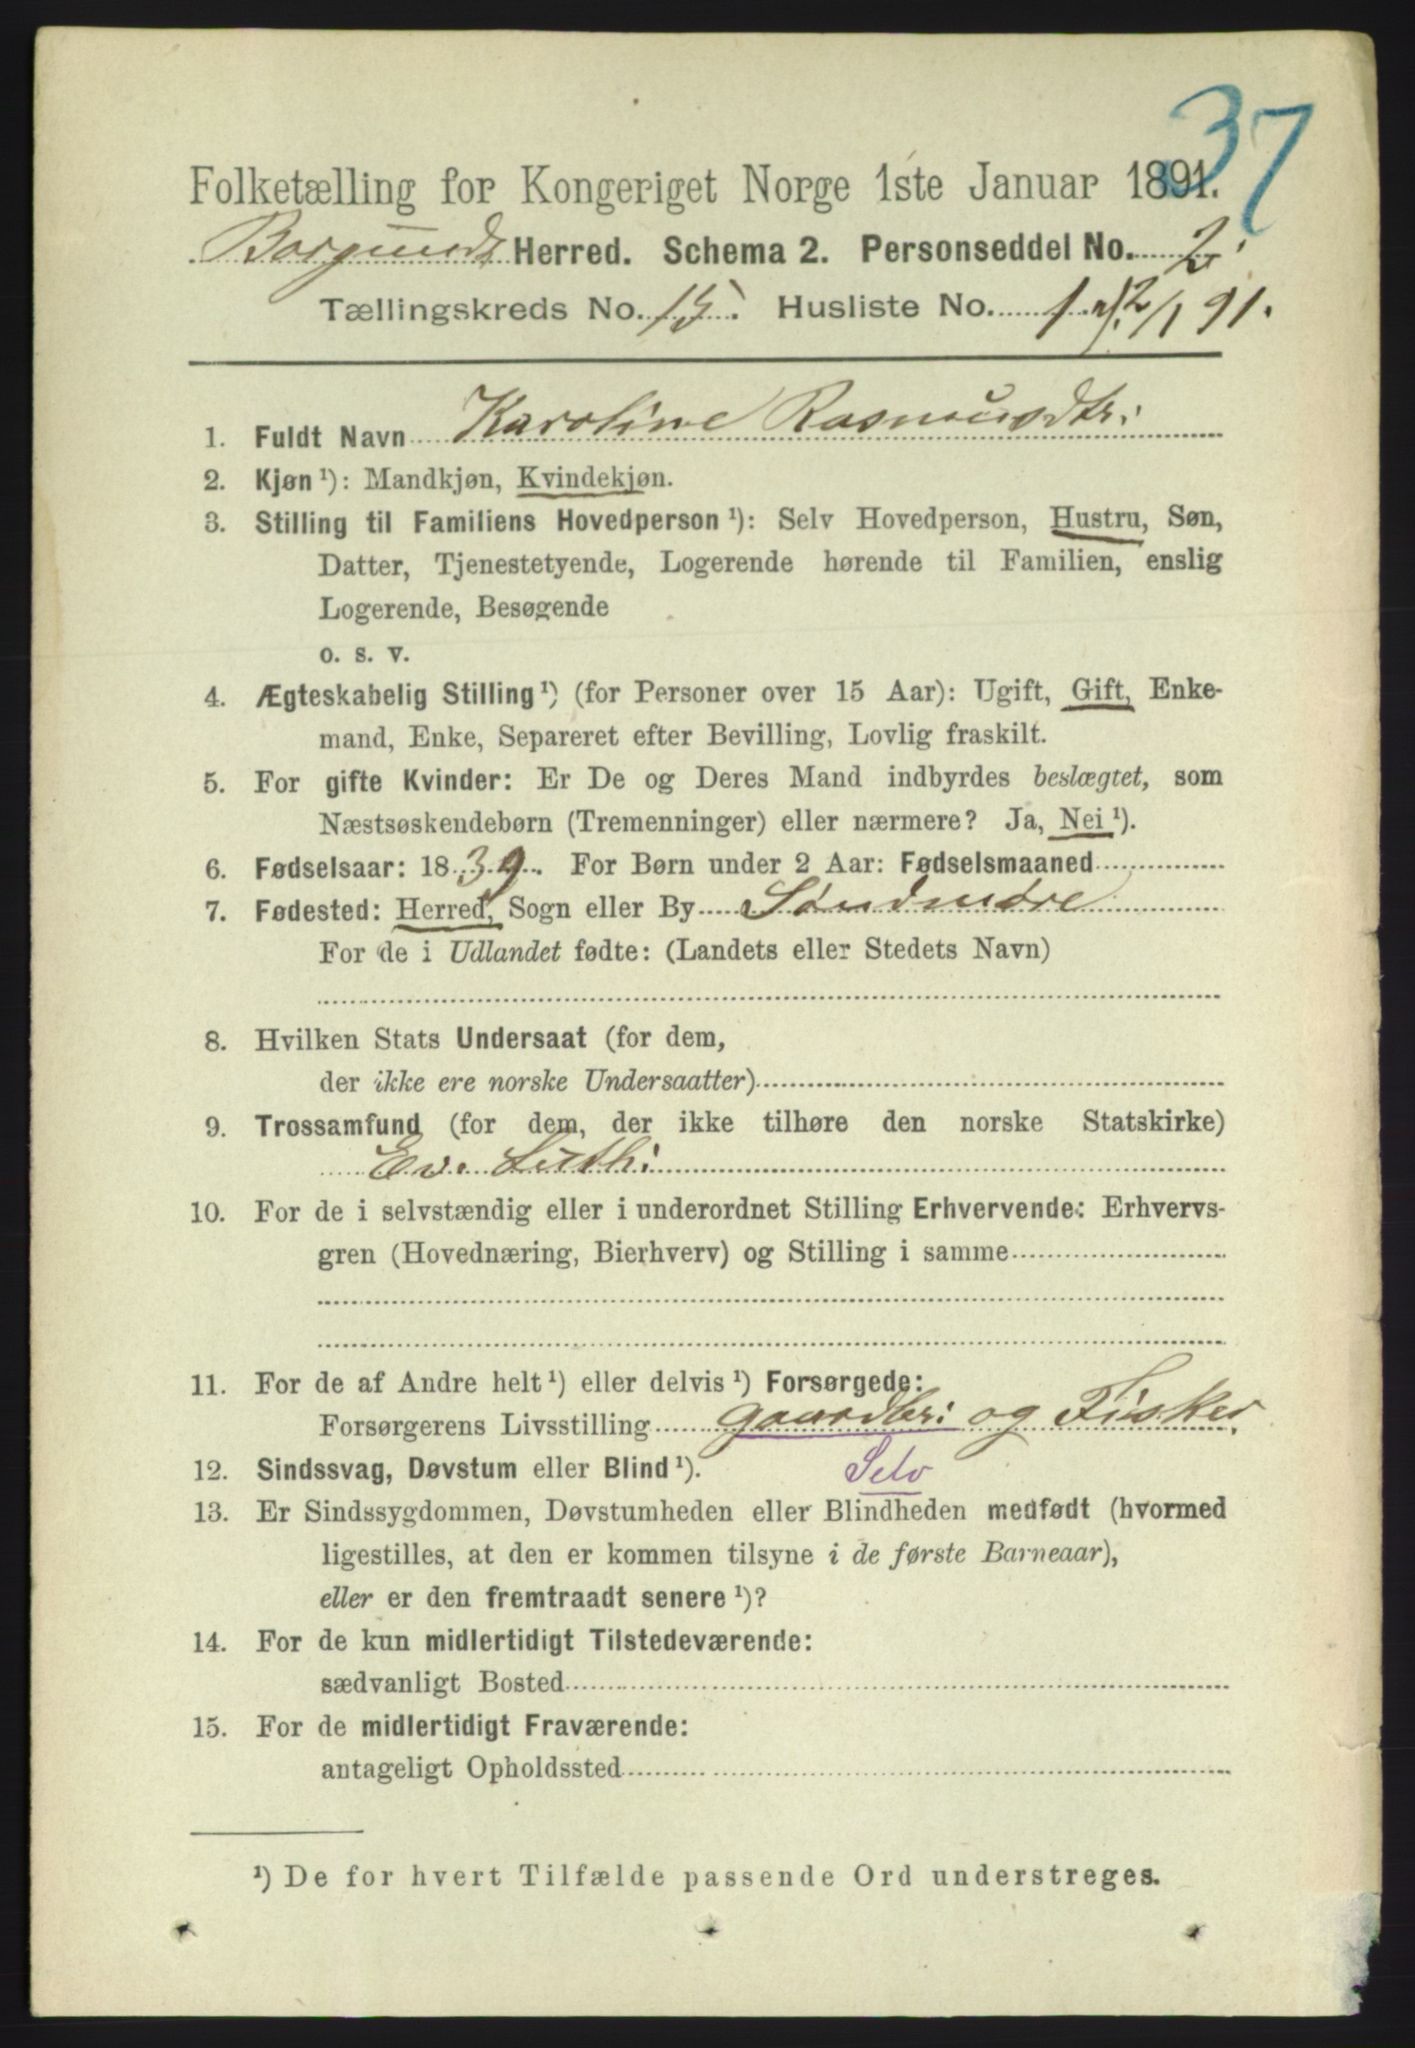 37
Folketælling for Kongeriget Norge 1ste Januar 1891.
Borgunds Herred. Schema 2. Personseddel No. 2.
Tællingskreds No. 15. Husliste No. 1 2/1 91.
1. Fuldt Navn Karoline Rasmusdtr:
2. Kjøn ¹): Mandkjøn, Kvindekjøn.
3. Stilling til Familiens Hovedperson ¹): Selv Hovedperson, Hustru, Søn,
Datter, Tjenestetyende, Logerende hørende til Familien, enslig
Logerende, Besøgende
o. s. v.
4. Ægteskabelig Stilling ¹) (for Personer over 15 Aar): Ugift, Gift, Enke-
mand, Enke, Separeret efter Bevilling, Lovlig fraskilt.
5. For gifte Kvinder: Er De og Deres Mand indbyrdes beslægtet, som
Næstsøskendebørn (Tremenninger) eller nærmere? Ja, Nei ¹).
6. Fødselsaar: 1839. For Børn under 2 Aar: Fødselsmaaned
7. Fødested: Herred, Sogn eller By Søndmøre
For de i Udlandet fødte: (Landets eller Stedets Navn)
8. Hvilken Stats Undersaat (for dem,
der ikke ere norske Undersaatter)
9. Trossamfund (for dem, der ikke tilhøre den norske Statskirke)
Ev. Luth:
10. For de i selvstændig eller i underordnet Stilling Erhvervende: Erhvervs-
gren (Hovednæring, Bierhverv) og Stilling i samme
11. For de af Andre helt ¹) eller delvis ¹) Forsørgede:
Forsørgerens Livsstilling gaardbr: og Fisker.
12. Sindssvag, Døvstum eller Blind ¹). Selv
13. Er Sindssygdommen, Døvstumheden eller Blindheden medfødt (hvormed
ligestilles, at den er kommen tilsyne i de første Barneaar),
eller er den fremtraadt senere ¹)?
14. For de kun midlertidigt Tilstedeværende:
sædvanligt Bosted
15. For de midlertidigt Fraværende:
antageligt Opholdssted
¹) De for hvert Tilfælde passende Ord understreges.